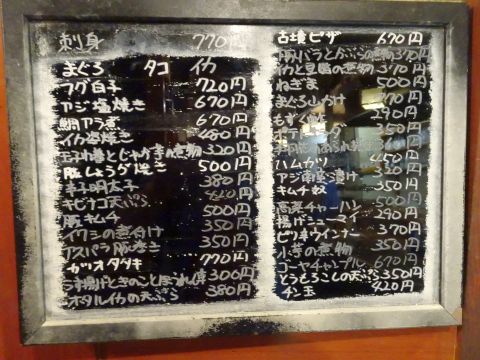 刺身 770円
まぐろ タコ イカ
フグ白子 720円
アジ塩焼き 670円
鯛アラ煮 670円
イカ姿焼き 480円
玉子巾着とじゃが芋の煮物 320円
豚ムラダ焼き 500円
辛子明太子 380円
キビナゴ天ぷら
豚キムチ 500円
イワシの煮付け 350円
アスパラ豚巻き 350円
カツオタタキ 770円
うす揚げときのこの 300円
ホタルイカの天ぷら 380円
古墳ピザ 670円
豚バラと の煮物 370円
イカと豆腐の煮物 370円
ねぎま 500円
まぐろ山かけ
もずく 290円
ポテトサラダ 350円
ハムカツ 450円
アジ南蛮漬け 320円
キムチ奴 350円
高菜チャーハン 500円
揚げシューマイ 290円
ピリ辛ウインナー 370円
小芋の煮物 350円
ゴーヤチャンプル 670円
とうもろこしの天ぷら 350円
チン玉 420円